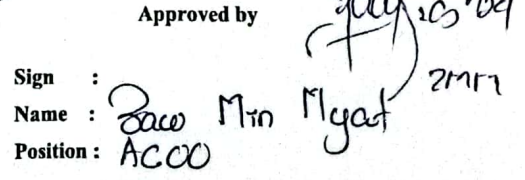 Approved by
Sign :
Name : Zaw Min Myat
Position : ACOO